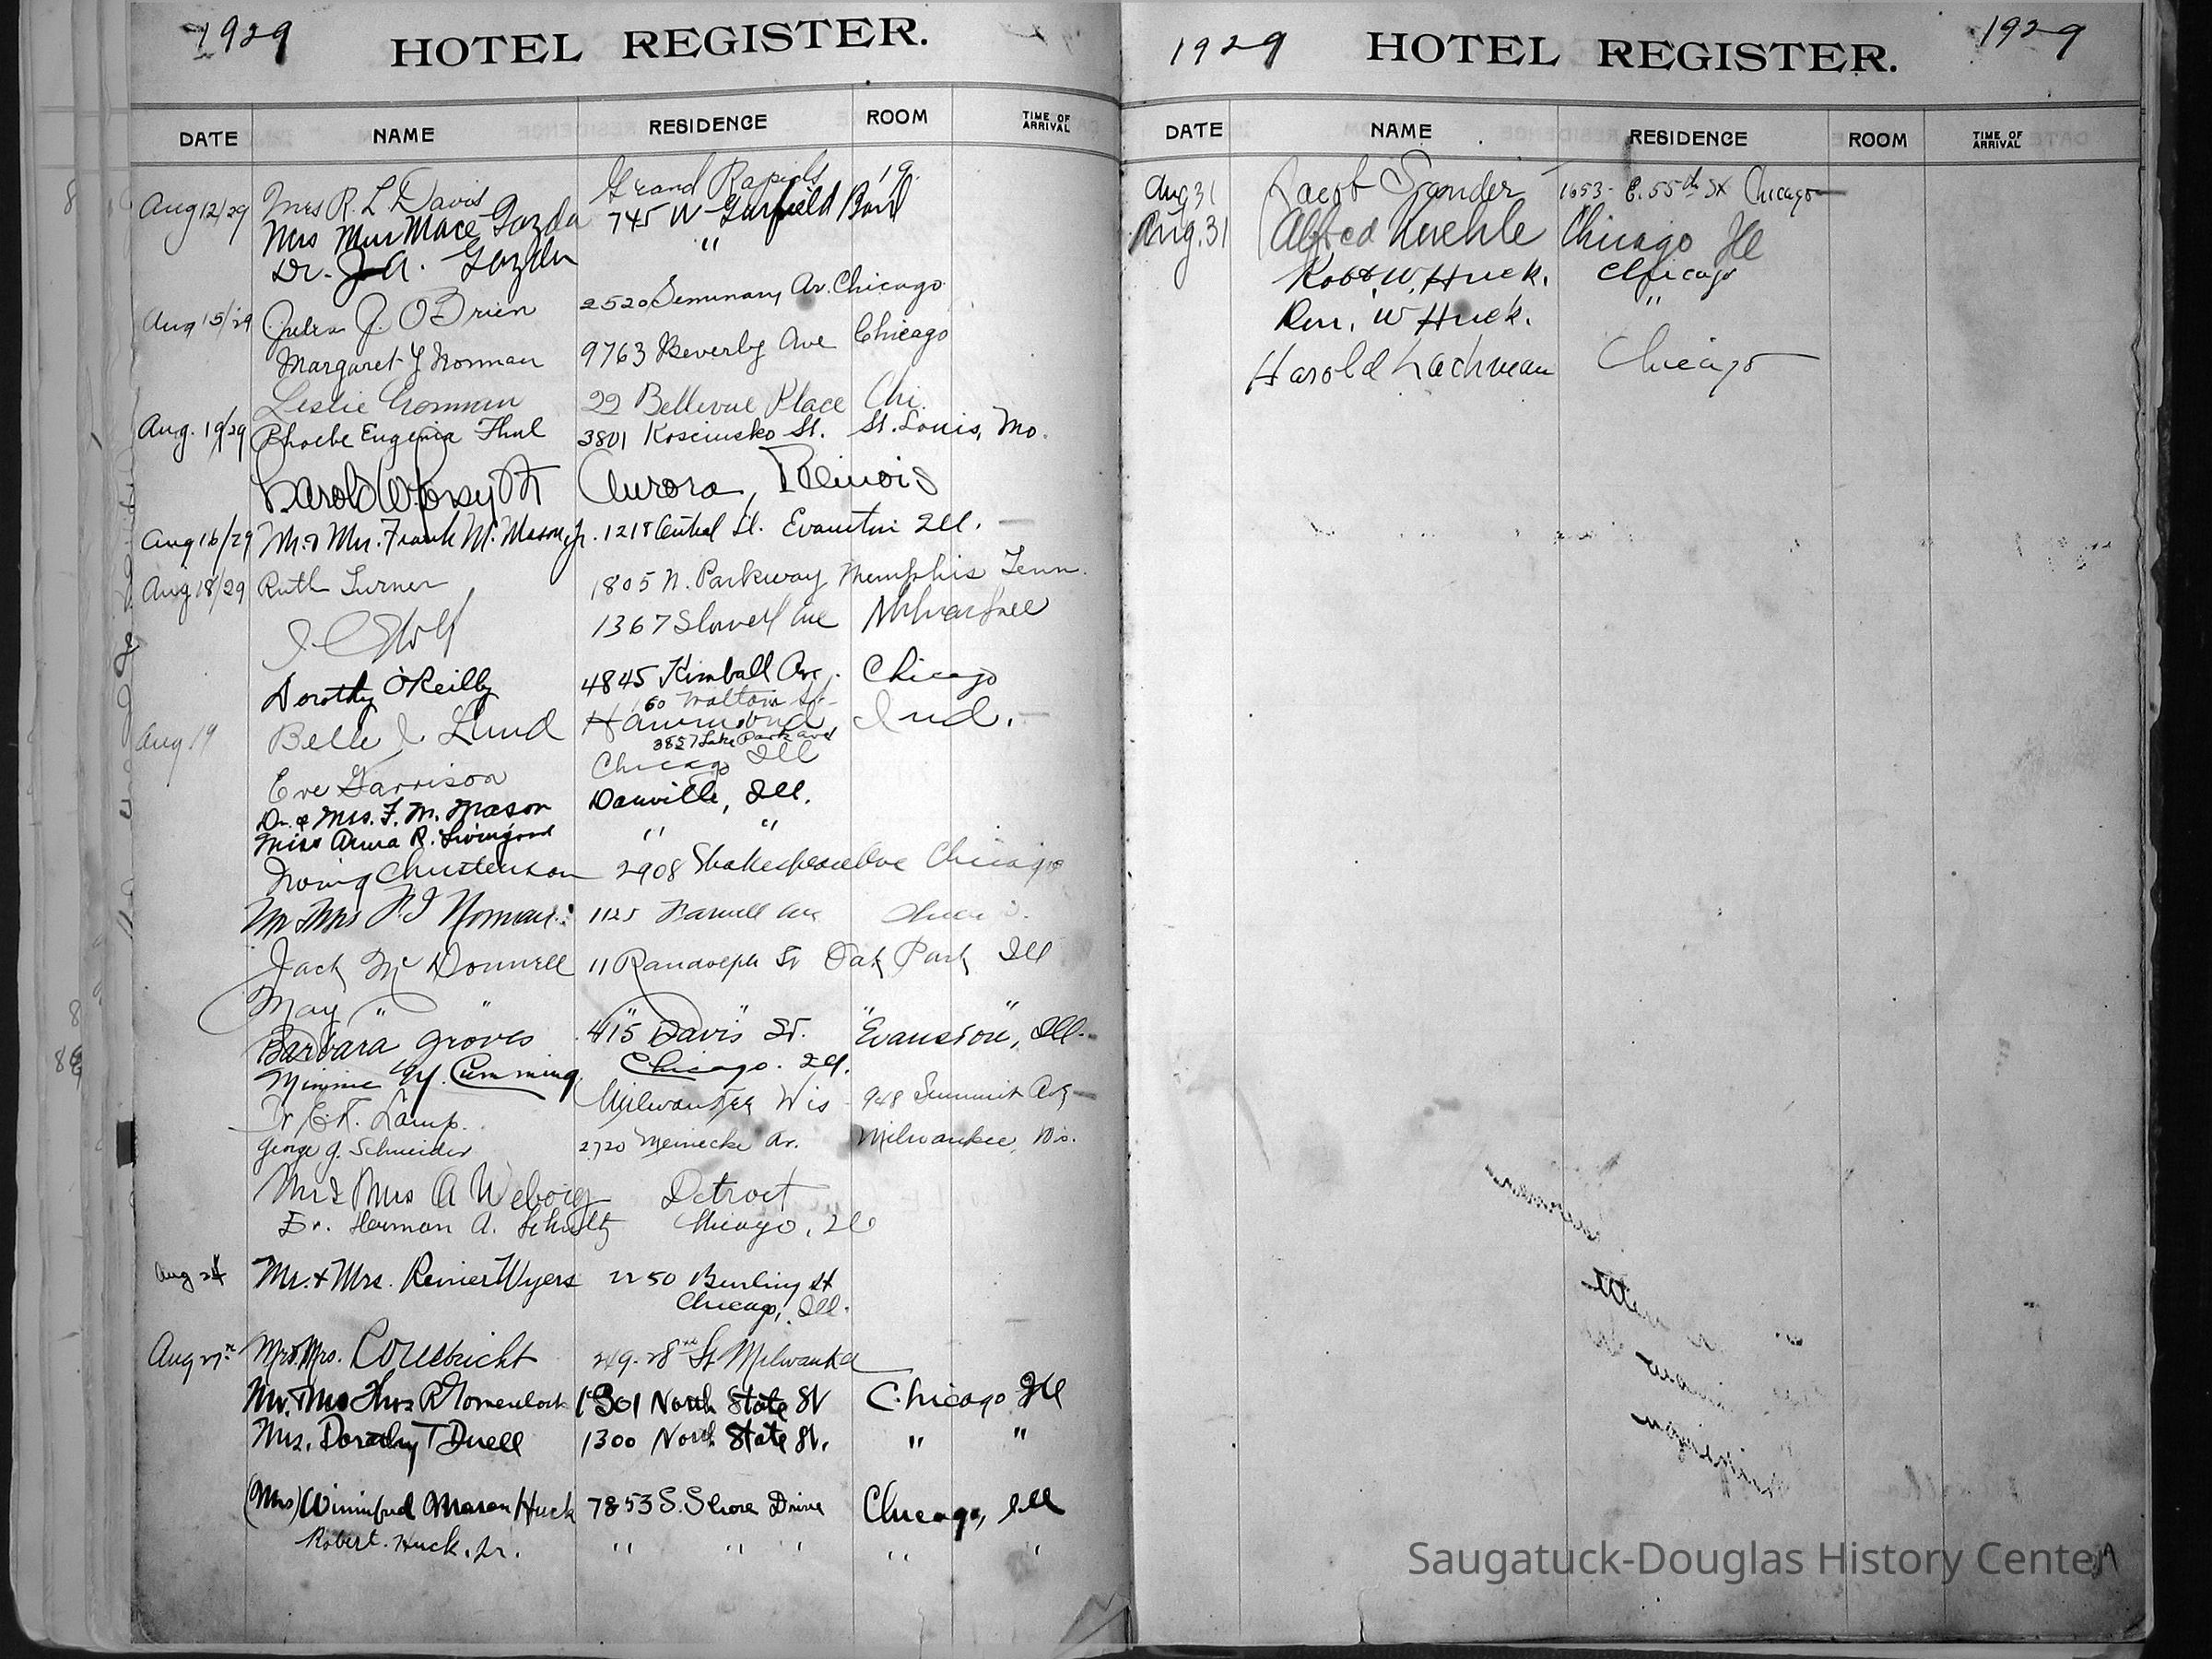 1929
HOTEL REGISTER.
DATE NAME RESIDENCE ROOM TIME OF ARRIVAL
Aug 12/29 Mrs R. L. Davis Grand Rapids 19.
Mrs Mace Gazda 745 W Garfield
Dr. J. A. Gazda "
Aug 15/29 Julia J. O'Brien 2520 Seminary Av. Chicago
Margaret Y Norman 9763 Beverly Ave Chicago
Leslie Gorman 22 Bellevue Place Chi.
Aug. 19/29 Phoebe Eugenia Thul 3801 Kosciusko St. St. Louis, Mo.
Harold Aurora, Illinois
Aug 16/29 Mr. & Mrs. Frank M. Mason Jr. 1218 Central St. Evanston Ill.
Aug 18/29 Ruth Turner 1805 N. Parkway Memphis Tenn.
1367 Stowell Ave Milwaukee
Dorothy O'Reilly 4845 Kimball Ave. Chicago
160 Walton St.
Aug 19 Belle J. Lund Hammond, Ind.
3857 Lake Park Ave
Eve Garrison Chicago Ill
Dr. & Mrs. F. M. Mason Danville, Ill.
Miss Anna R. Livingood " "
Irving Christenson 2908 Shakespeare Ave Chicago
Mr & Mrs Norman 1125 Farwell Ave
Jack McDonnell 11 Randolph St Oak Park Ill
May " " " " " "
Barbara Groves 415 Davis St. Evanston, Ill.
Minnie M. Cumming Chicago. Ill.
Dr Lamp. Milwaukee Wis 948 Summit Av
George J. Schneider 2720 Meinecke Av. Milwaukee, Wis.
Mr & Mrs A Detroit
Dr. Herman A. Schultz Chicago, Ill
Aug 24 Mr. & Mrs. Reinier Wyers 2250 Burling St
Chicago, Ill.
Aug 27th Mr & Mrs. 249-28th St Milwaukee
Mr. Mrs Thos R 1301 North State St Chicago Ill
Mrs. Dorothy T Duell 1300 North State St. " "
(Mrs) Winnifred Mason Huck 7853 S. Shore Drive Chicago, Ill
Robert Huck, Jr. " " " " "
1929
HOTEL REGISTER.
1929
DATE NAME RESIDENCE ROOM TIME OF ARRIVAL
Aug 31 Jacob 1653- E. 55th St Chicago
Aug. 31 Alfred Chicago Ill
Robt. W. Huck. Chicago
W Huck. "
Harold Lachman Chicago
Saugatuck-Douglas History Center